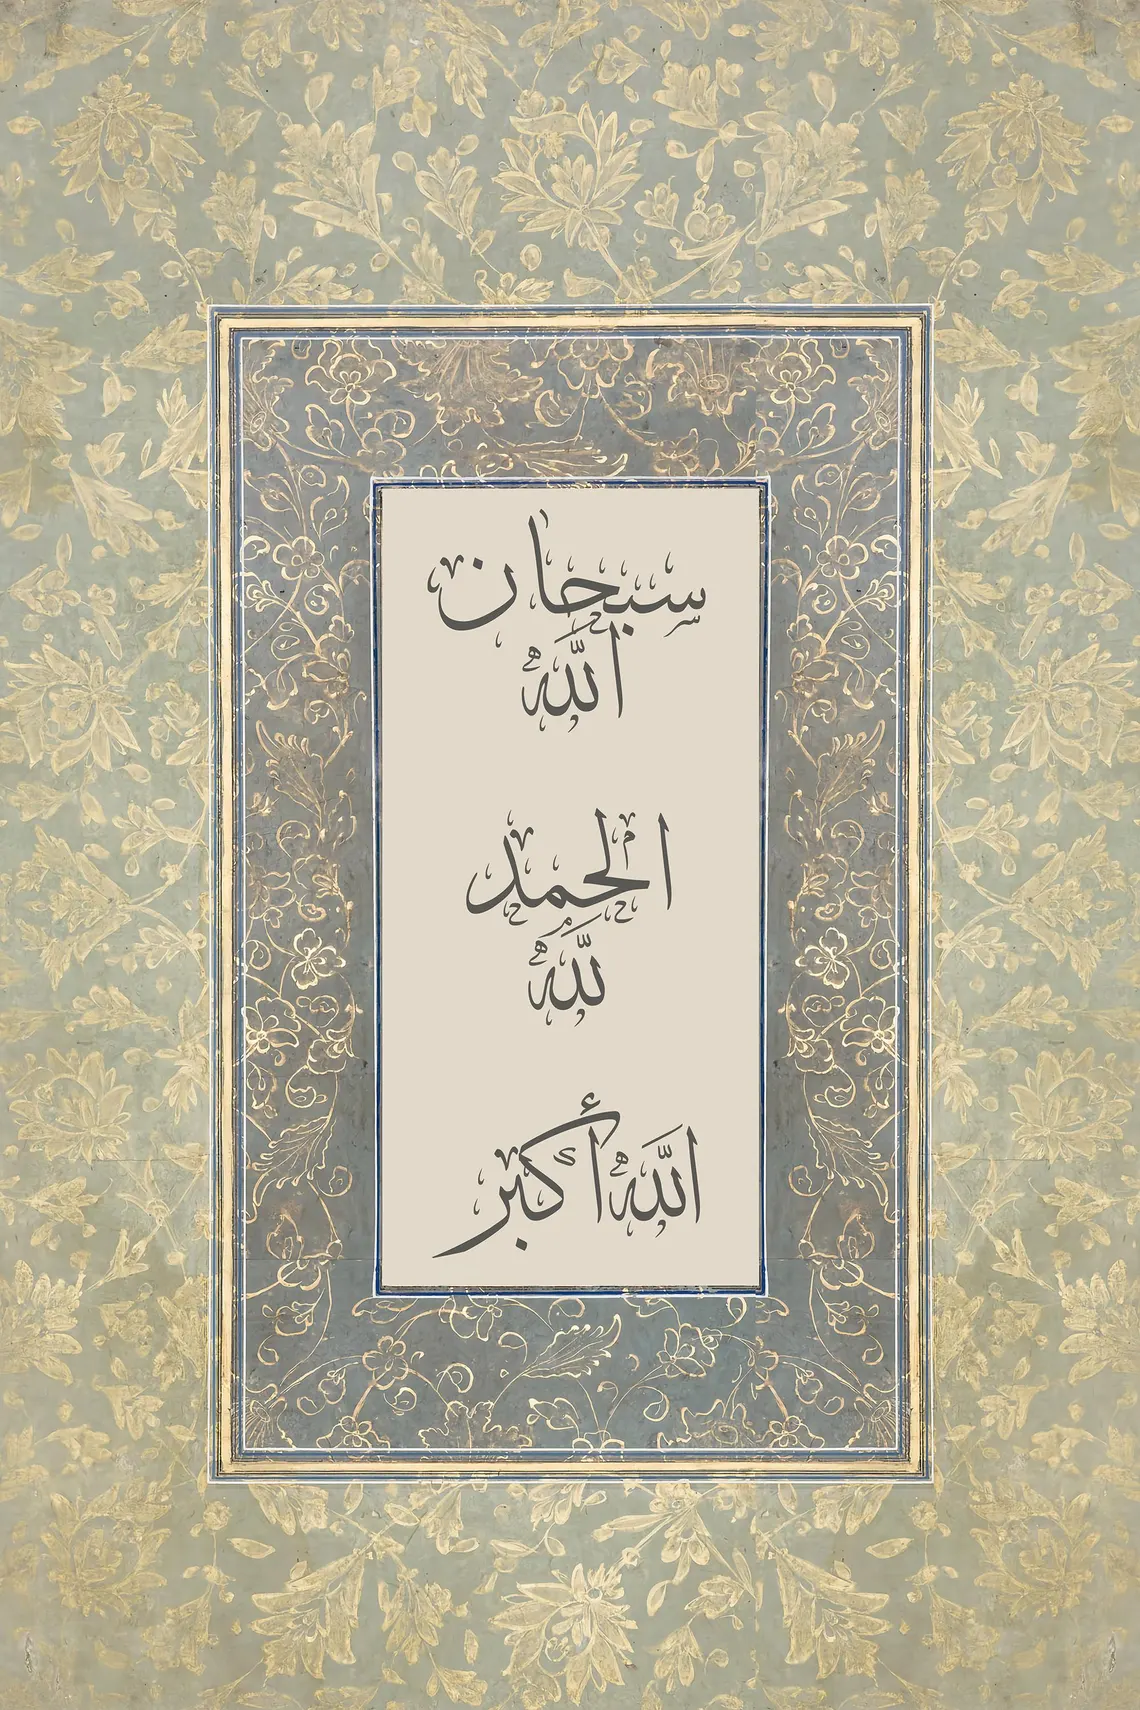 سبحان
الله
الحمد
لله
الله أكبر